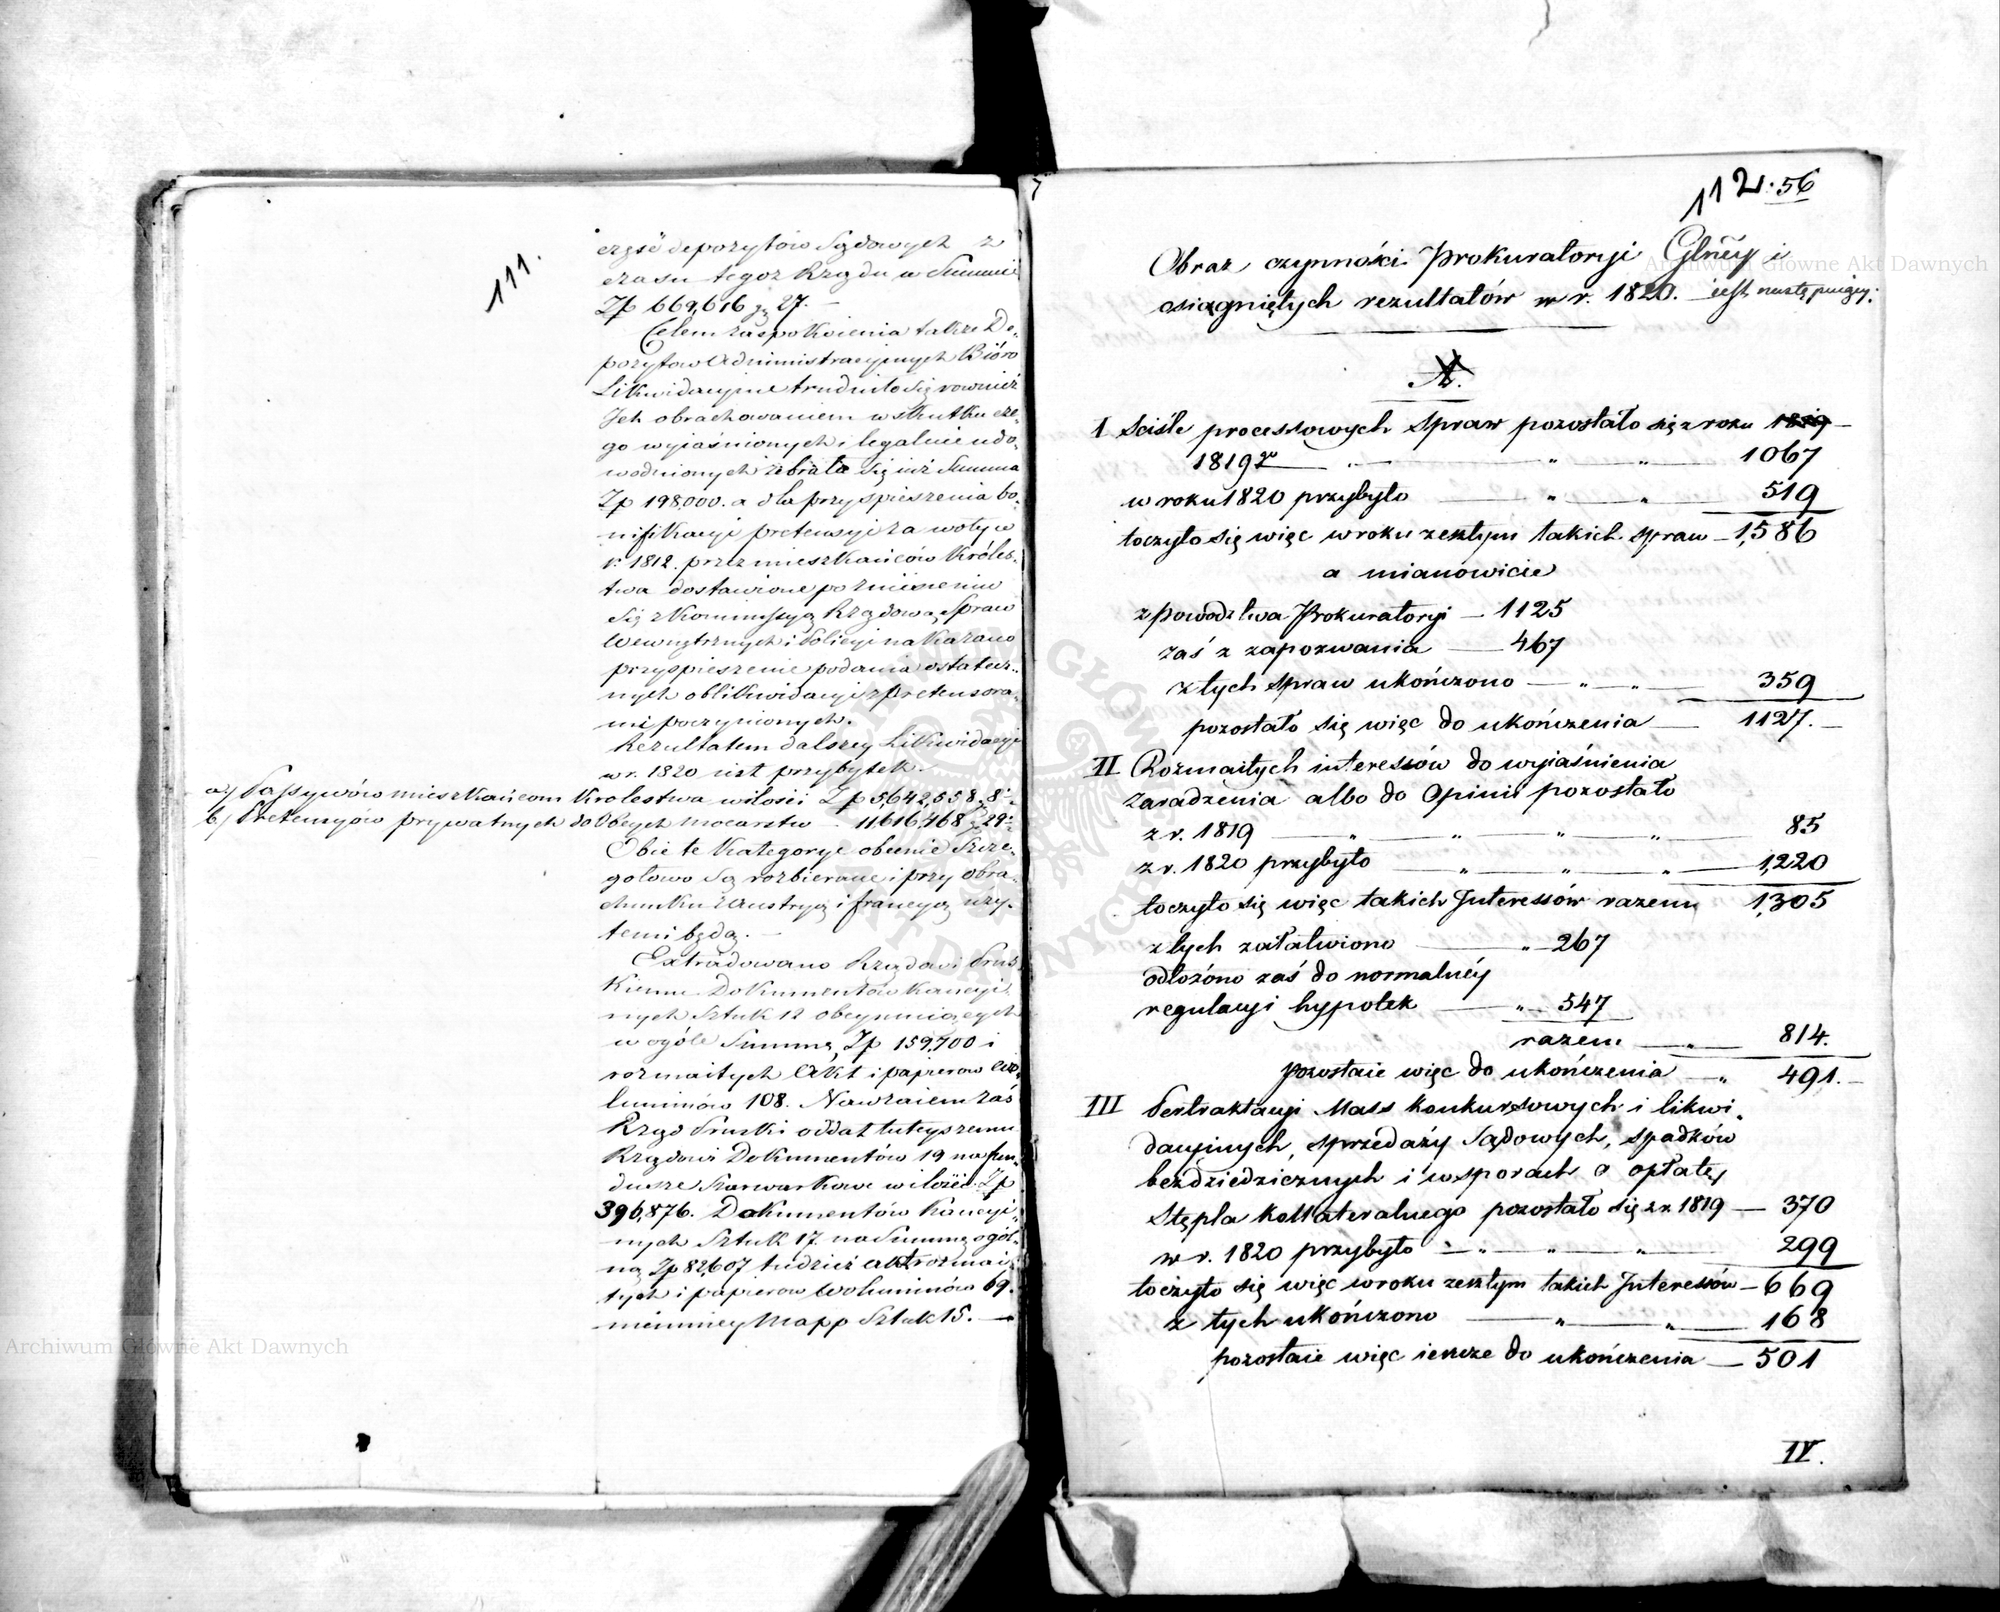 111.
część depozytów Sądowych z
czasu tegoż Rządu w Summie
Zp 669,616 gr 27. —
Celem zaspokoienia także De-
pozytow Administracyinych Bióro
Likwidacyine trudniło się rownież
Ich obrachowaniem w skutku cze-
go wyiaśnionych i legalnie udo-
wodnionych zebrała się iuż Summa
Zp 198,000. a dla przyspieszenia bo-
nifikacyi pretensyi za woły w
r. 1812. przez mieszkańców Króles-
twa dostawione po zniesieniu
się z Kommissyą Rządową Spraw
Wewnętrznych i Policyi nakazano
przyspieszenie podania ostatecz-
nych oblikwidacyi z pretensora-
mi poczynionych.
Rezultatem dalszey Likwidacyi
w r. 1820 iest przybytek.
a) Passywów mieszkańcom Krolestwa wilości Zp 5,642,558, 8.
b) Pretensyów prywatnych do Obcych mocarstw — 11,616,468 gr 29.
Obie te kategorye obecnie Szcze-
golowo Są rozbierane i przy obra-
chunku z Austryą i francyą uży-
temi będą. —
Extradowano Rządowi Prus-
kiemu Dokumentów kaucyi-
nych Sztuk 12 obeymuiących
w ogóle Summę Zp 159,700 i
rozmaitych Akt i papierow wo-
luminów 108. Nawzaiem zaś
Rząd Pruski oddał tuteyszemu
Rządowi Dokumentów 19 na fun-
dusze Szarwarkowe wilości Zp
396,876. Dokumentów kaucyi-
nych Sztuk 17. na Summę ogól-
ną Zp 82,607 tudzież akt rozmai-
tych i papierow Woluminów 69.
niemniey Mapp Sztuk 15. —
112. 56
Obraz czynności Prokuratoryi Glney i
osiągniętych rezultatów w r. 1820. iest następuiący:
A.
I Sciśle processowych spraw pozostało się z roku 1819 —
1819 r — „ — „ — „ — 1067
w roku 1820 przybyło — „ — „ — 519
toczyło się więc w roku zeszłym takich spraw — 1,586
a mianowicie
z powodztwa Prokuratoryi — 1125
zaś z zapozwania — 467
z tych spraw ukończono — „ — „ — 359
pozostało się więc do ukończenia — 1127. —
II Rozmaitych interessów do wyiaśnienia
zaradzenia albo do Opinii pozostało
z r. 1819 — „ — „ — „ — „ — 85
z r. 1820 przybyło — „ — „ — „ — 1,220
toczyło się więc takich Interessów razem 1,305
z tych załatwiono — „ 267
odłożono zaś do normalnéy
regulacyi hypotek — „ 547
razem — „ — 814.
pozostaie więc do ukończenia — „ 491. —
III Pertraktacyi Mass konkursowych i likwi-
dacyinych, sprzedaży Sądowych, spadków
bezdziedzicznych i w sporach o opłatę
Stępla kollateralnego pozostało się z r. 1819 — 370
w r. 1820 przybyło — „ — „ — „ — 299
toczyło się więc w roku zeszłym takich Interessów — 669
z tych ukończono — „ — „ — 168
pozostaie więc ieszcze do ukończenia — 501
IV.
Archiwum Główne Akt Dawnych
Archiwum Główne Akt Dawnych